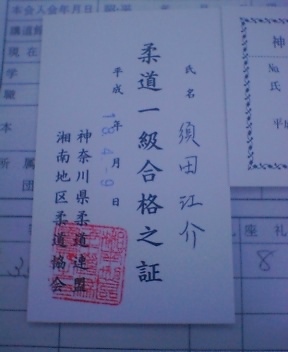 本会入会年月日
講道館
現在
学
職
本
所属
団
氏名 須田江介
柔道一級合格之証
平成18年4月9日
神奈川県柔道連盟
湘南地区柔道協会
神
No
氏
平成
座礼
8
3